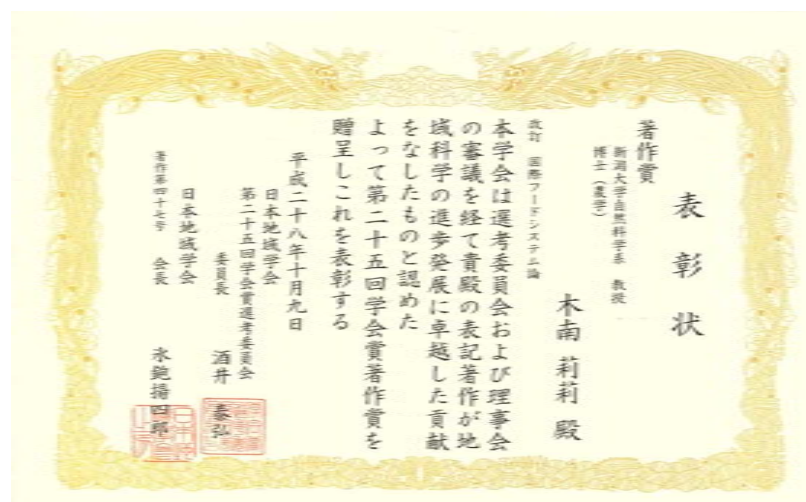 表彰状
著作賞
新潟大学自然科学系 教授
博士(農学)
木南 莉莉 殿
改訂 国際フードシステム論
本学会は選考委員会および理事会
の審議を経て貴殿の表記著作が地
域科学の進歩発展に卓越した貢献
をなしたものと認めた
よって第二十五回学会賞著作賞を
贈呈しこれを表彰する
平成二十八年十月九日
日本地域学会
第二十五回学会賞選考委員会
委員長 酒井 泰弘
日本地域学会
著作第四十七号 会長 氷鉋揚四郎